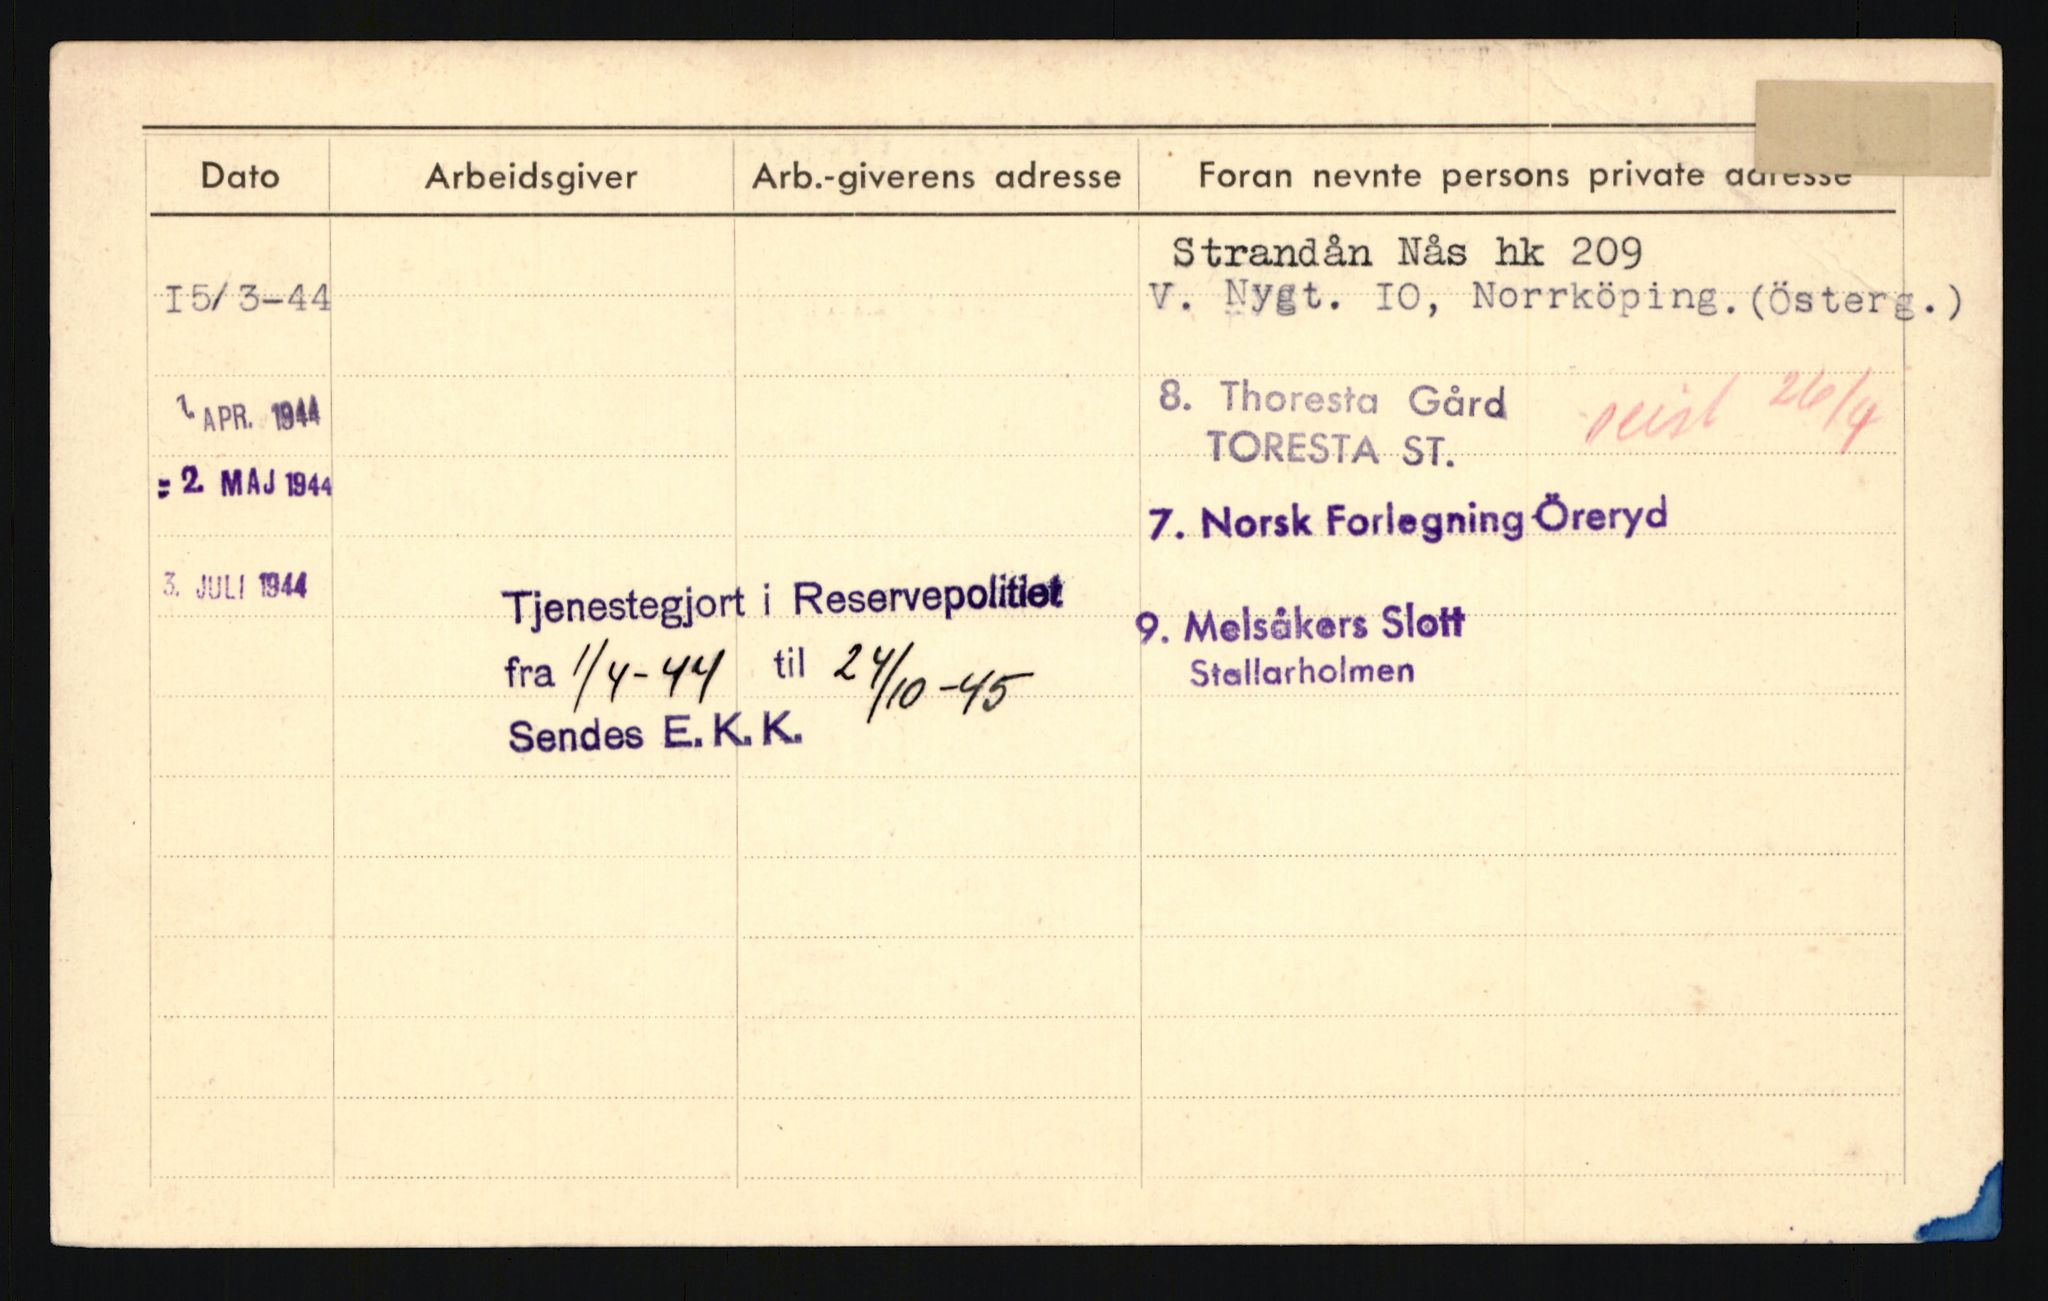 Dato Arbeidsgiver Arb.-giverens adresse Foran nevnte persons private adresse
Strandån Nås hk 209
I5/3-44 V. Nygt. IO, Norrköping.(Österg.)
1. APR. 1944 8. Thoresta Gård reist 26/4
TORESTA ST.
= 2. MAJ 1944
7. Norsk Forlegning Öreryd
3. JULI 1944
Tjenestegjort i Reservepolitiet
9. Melsåkers Slott
fra 1/4-44 til 24/10-45 Stallarholmen
Sendes E. K. K.